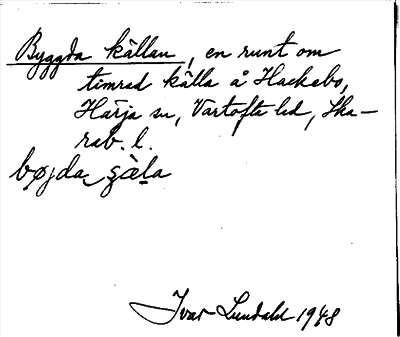 Byggda källan, en runt om
timrad källa å Hackebo,
Härja sn, Vartofta hd, Ska-
rab. l.
bøjda källa
Ivar Lundahl 1948